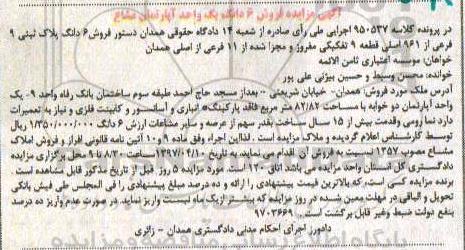 آگهی مزایده فروش ۶ دانگ یک واحد آپارتمان مشاع
در پرونده کلاسه ۹۵۰۵۳۷ اجرایی طی رأی صادره از شعبه ۱۴ دادگاه حقوقی همدان دستور فروش ۶ دانگ پلاک ثبتی ۹
فرعی از ۹۶۱ اصلی قطعه ۹ تفکیکی مفروز و مجزا شده از ۱۱ فرعی از اصلی همدان
خواهان: موسسه اعتباری ثامن الائمه
خوانده: محسن وسیط و حسین بیژنی علی پور
آدرس ملک مورد فروش: همدان- خیابان شریعتی - بعداز مسجد حاج احمد طبقه سوم ساختمان بانک رفاه واحد ۹- یک
واحد آپارتمان دو خوابه با مساحت ۸۲/۸۲ متر مربع فاقد پارکینگ انباری و آسانسور و کابینت فلزی و نیاز به تعمیرات
دارد نما رومی وقدمت بیش از ۱۵ سال ساخت بقدر سهم از عرصه و سایر مشاعات ارزش ۶ دانگ ۱/۳۵۰/۰۰۰/۰۰۰ ریال
توسط کارشناس اعلام گردیده و ملاک مزایده است . لذااین اجراء وفق ماده ۹ و ۱۰ آئین نامه قانونی افراز و فروش املاک
مشاع مصوب ۱۳۵۷ نسبت به فروش آن اقدام می نماید. به تاریخ ۱۳۹۷/۰۴/۱۰ ساعت ۸/۳۰ تا ۹ محل برگزاری مزایده
دادگستری کل استان واحد مزایده می باشد اتاق ۱۳۰ است. مورد مزایده ۵ روز قبل از تاریخ مذکور قابل مشاهده است .
برنده مزایده کسی است، که بالاترین قیمت پیشنهادی را ارائه و ده درصد مبلغ پیشنهادی را فی المجلس طی فیش بانکی
تحویل و الباقی در مهلت معین شده در روز مزایده که بیشتر ازیک ماه نیست واریز نماید. در صورت عدم واریز ده درصد
بنفع دولت ضبط وغیر قابل برگشت است. ۹۷۰۳۶۶۹
دادورز اجرای احکام مدنی دادگستری همدان - زائری